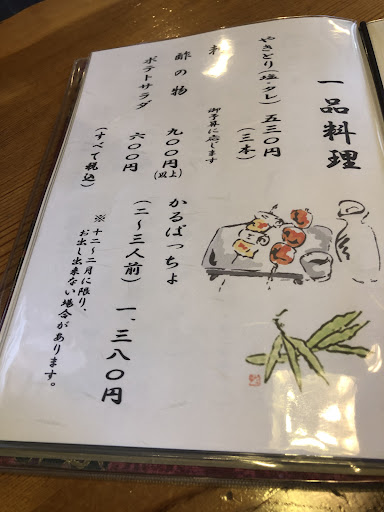 一品料理
やきとり(塩・タレ) 五三〇円
(三本)
御予算に応じます
酢の物 九〇〇円(以上)
ポテトサラダ 六〇〇円
(すべて税込)
かるぱっちょ
(二～三人前) 一、三八〇円
※十二～二月に限り、
お出し出来ない場合があります。